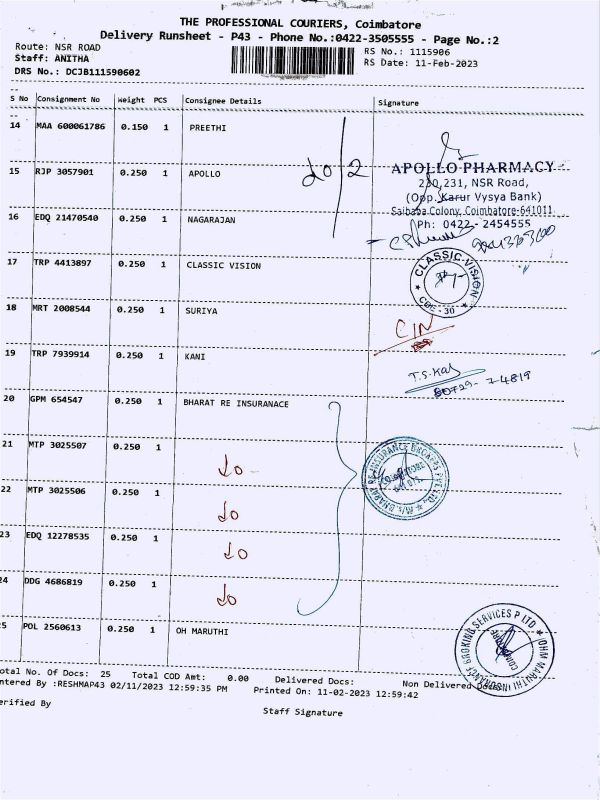 THE PROFESSIONAL COURIERS, Coimbatore
Delivery Runsheet - P43 - Phone No.:0422-3505555 - Page No.:2
Route: NSR ROAD
RS No.: 1115906
Staff: ANITHA
RS Date: 11-Feb-2023
DRS No.: DCJB111590602
S No Consignment No Weight PCS Consignee Details Signature
14 MAA 600061786 0.150 1 PREETHI
15 RJP 3057901 0.250 1 APOLLO
do 2
APOLLO PHARMACY
230,231, NSR Road,
(Opp. Karur Vysya Bank)
Saibaba Colony, Coimbatore-641011
Ph: 0422 - 2454555
16 EDQ 21470540 0.250 1 NAGARAJAN
17 TRP 4413897 0.250 1 CLASSIC VISION
CLASSIC VISION
CBE - 30
18 MRT 2008544 0.250 1 SURIYA
19 TRP 7939914 0.250 1 KANI
20 GPM 654547 0.250 1 BHARAT RE INSURANACE
21 MTP 3025507 0.250 1
do
22 MTP 3025506 0.250 1
do
23 EDQ 12278535 0.250 1
do
24 DDG 4686819 0.250 1
do
25 POL 2560613 0.250 1 OH MARUTHI
otal No. Of Docs: 25 Total COD Amt: 0.00 Delivered Docs: Non Delivered Docs:
ntered By :RESHMAP43 02/11/2023 12:59:35 PM Printed On: 11-02-2023 12:59:42
erified By
Staff Signature